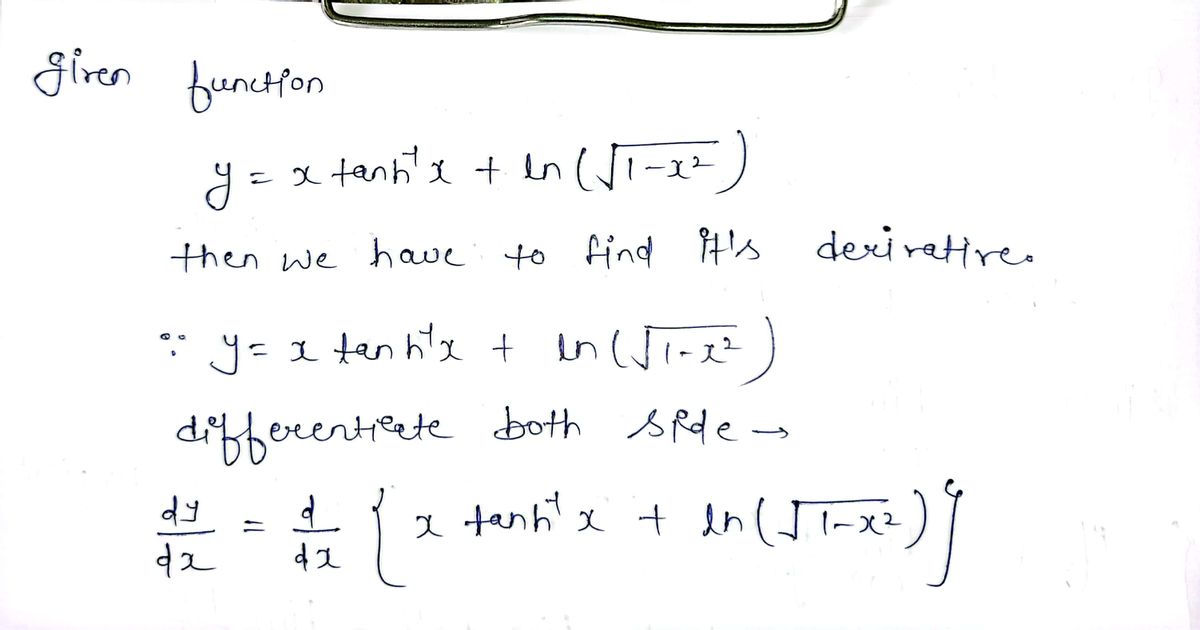 given function
y = x tanh⁻¹x + ln(√1-x²)
then we have to find it's derivative.
∵ y = x tanh⁻¹x + ln(√1-x²)
differentiate both side →
dy/dx = d/dx { x tanh⁻¹x + ln(√1-x²) }